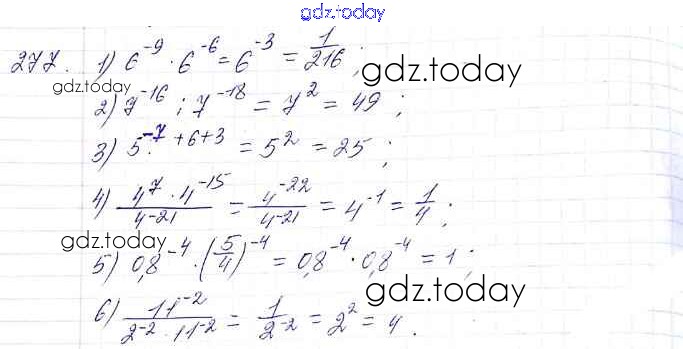 gdz.today
277. 1) 6^-9 · 6^-6 = 6^-3 = 1/216;
gdz.today
gdz.today
2) 7^-16 : 7^-18 = 7^2 = 49;
3) 5^-7+6+3 = 5^2 = 25;
4) 4^7 · 4^-15 / 4^-21 = 4^-22 / 4^-21 = 4^-1 = 1/4;
gdz.today
5) 0,8^-4 · (5/4)^-4 = 0,8^-4 · 0,8^-4 = 1;
gdz.today
6) 11^-2 / 2^-2 · 11^-2 = 1 / 2^-2 = 2^2 = 4.